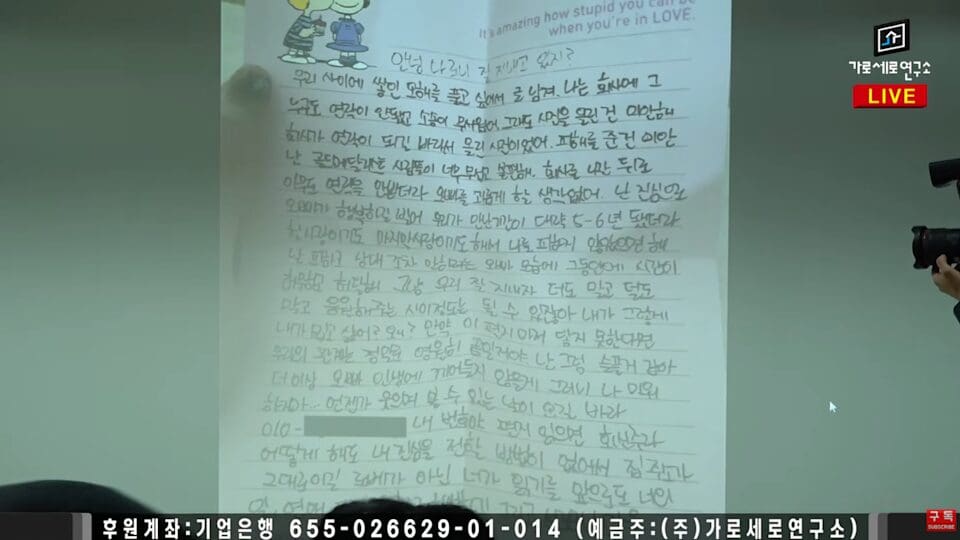 It's amazing how stupid you can be
when you're in LOVE.
가로세로연구소
LIVE
안녕 나 잘 지내고 있지?
우리 사이에 쌓인 오해를 풀고 싶어서 글 남겨. 나는 회사에 그
누구도 연락이 안됐었고 소송이 무서웠어. 그래도 사진을 올린 건 미안해
회사가 연락이 되길 바라서 올린 사진이었어. 피해를 준건 미안
난 골드메달리스트 사람들이 너무 무섭고 불편해. 회사를 나간 뒤로
아무도 연락을 안받더라 오빠를 괴롭게 할 생각없어. 난 진심으로
오빠가 행복하길 빌어 우리가 만난기간이 대략 5-6년 됐더라
첫사랑이기도 마지막사랑이기도 해서 나를 피하지 않았으면 해
난 상대조차 안하려는 오빠 모습에 그동안에 시간이
허무하고 허탈해 그냥 우리 잘 지내자 더도 말고 덜도
말고 응원해주는 사이정도는 될 수 있잖아 내가 그렇게
내가 밉고 싫어? 왜? 만약 이 편지마저 닿지 못한다면
우리의 관계는 정말로 영원히 끝일거야 난 그럼 슬플거 같아
더이상 오빠 인생에 끼어들지 않을게 그러니 나 미워
하지마... 언젠가 웃으며 볼 수 있는 날이 오길 바라
010- 내 번호야 편지 읽으면 회신주라
어떻게 해도 내 진심을 전할 방법이 없어서 집 주소가
그대로이길 로베가 아닌 너가 읽기를 앞으로도 너의
후원계좌:기업은행 655-026629-01-014 (예금주:(주)가로세로연구소)
구독
SUBSCRIBE